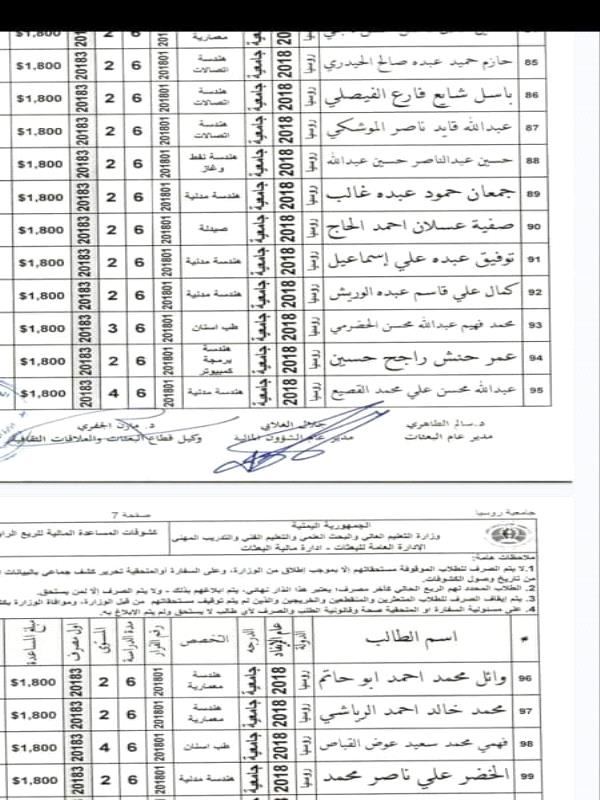 85 حازم حميد عبده صالح الحيدري روسيا 2018 جامعية هندسة اتصالات 201801 6 2 20183 $1,800
86 باسل شايع فارع الفيصلي روسيا 2018 جامعية هندسة اتصالات 201801 6 2 20183 $1,800
87 عبدالله قايد ناصر الموشكي روسيا 2018 جامعية هندسة اتصالات 201801 6 2 20183 $1,800
88 حسين عبدالناصر حسين عبدالله روسيا 2018 جامعية هندسة نفط وغاز 201801 6 2 20183 $1,800
89 جمعان حمود عبده غالب روسيا 2018 جامعية هندسة مدنية 201801 6 2 20183 $1,800
90 صفية عسلان احمد الحاج روسيا 2018 جامعية صيدلة 201801 6 2 20183 $1,800
91 توفيق عبده علي إسماعيل روسيا 2018 جامعية هندسة مدنية 201801 6 2 20183 $1,800
92 كمال علي قاسم عبده الوريش روسيا 2018 جامعية هندسة مدنية 201801 6 2 20183 $1,800
93 محمد فهيم عبدالله محسن الحضرمي روسيا 2018 جامعية طب اسنان 201801 6 3 20183 $1,800
94 عمر حنش راجح حسين روسيا 2018 جامعية هندسة برمجة كمبيوتر 201801 6 2 20183 $1,800
95 عبدالله محسن علي محمد القصيع روسيا 2018 جامعية هندسة مدنية 201801 6 4 20183 $1,800
د.سالم الطاهري جلال العلابي د. مازن الجفري
مدير عام البعثات مدير عام الشؤون المالية وكيل قطاع البعثات والعلاقات الثقافية
جامعية روسيا صفحة 7
الجمهورية اليمنية
وزارة التعليم العالي والبحث العلمي والتعليم الفني والتدريب المهني كشوفات المساعدة المالية للربع
الإدارة العامة للبعثات - ادارة مالية البعثات
ملاحظات هامة:
1.لا يتم الصرف للطلاب الموقوفة مستحقاتهم إلا بموجب إطلاق من الوزارة، وعلى السفارة أوالملحقية تحرير كشف جماعي بالبيانات
من تاريخ وصول الكشوفات.
2. الطلاب المحدد لهم الربع الحالي كآخر مصرف، يعتبر هذا انذار نهائي، يتم ابلاغهم بذلك - ولا يتم الصرف إلا لمن يستحق.
3. يتم إيقاف الصرف للطلاب المتعثرين والمنقطعين والخريجين والذين لم يتم توقيف مستحقاتهم من قبل الوزارة، وموافاة الوزارة
4. على مسئولية السفارة او الملحقية صحة وقانونية الطلب والصرف لأي طالب لا يستحق ولم يتم الابلاغ به.
# اسم الطالب الدولة عام الإيفاد الدرجة التخصص رقم القرار مدة الدراسة المستوى اول مصرف مبلغ المساعدة
96 وائل محمد احمد ابو حاتم روسيا 2018 جامعية هندسة معمارية 201801 6 2 20183 $1,800
97 محمد خالد احمد الرياشي روسيا 2018 جامعية هندسة معمارية 201801 6 2 20183 $1,800
98 فهمي محمد سعيد عوض القباص روسيا 2018 جامعية طب اسنان 201801 6 4 20183 $1,800
99 الخضر علي ناصر محمد روسيا 2018 جامعية هندسة مدنية 201801 6 2 20183 $1,800